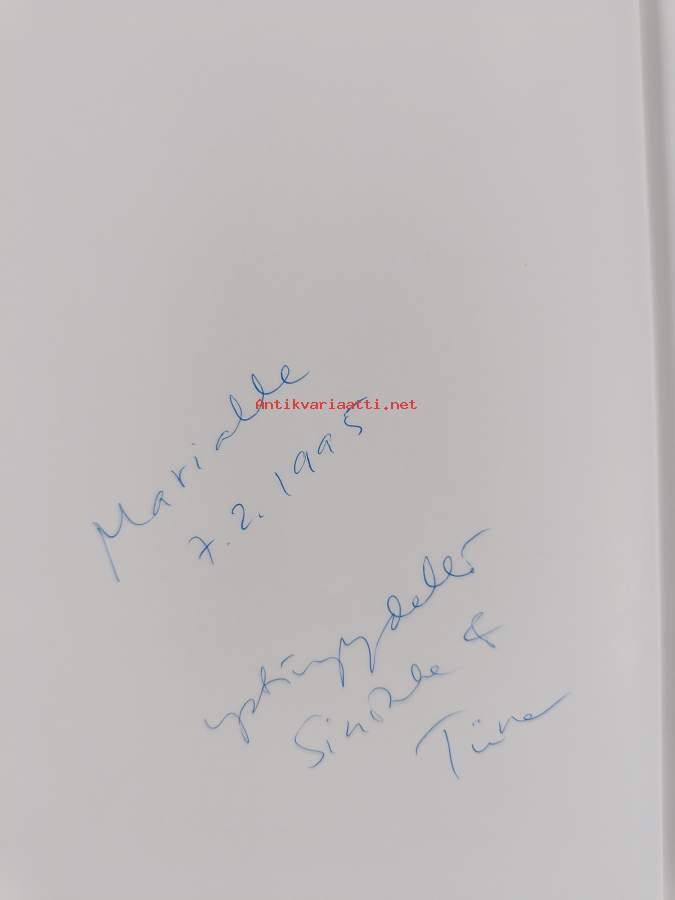 Marialle
Antikvariaatti.net
7.2.1995
ystävyydellä
Sinikka &
Tiina